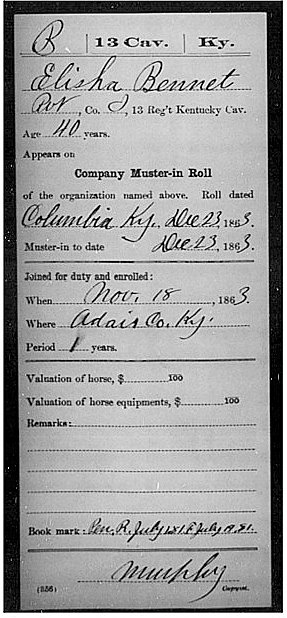 B | 13 Cav. | Ky.
Elisha Bennet
Pvt, Co. , 13 Reg't Kentucky Cav.
Age 40 years.
Appears on
Company Muster-in Roll
of the organization named above. Roll dated
Columbia Ky, Dec 23, 1863.
Muster-in to date Dec 23, 1863.
Joined for duty and enrolled:
When Nov. 18, 1863
Where Adair Co. Ky.
Period 1 years.
Valuation of horse, $ 100
Valuation of horse equipments, $ 100
Remarks:
Book mark: R. July
Murphy
(356) Copyist.